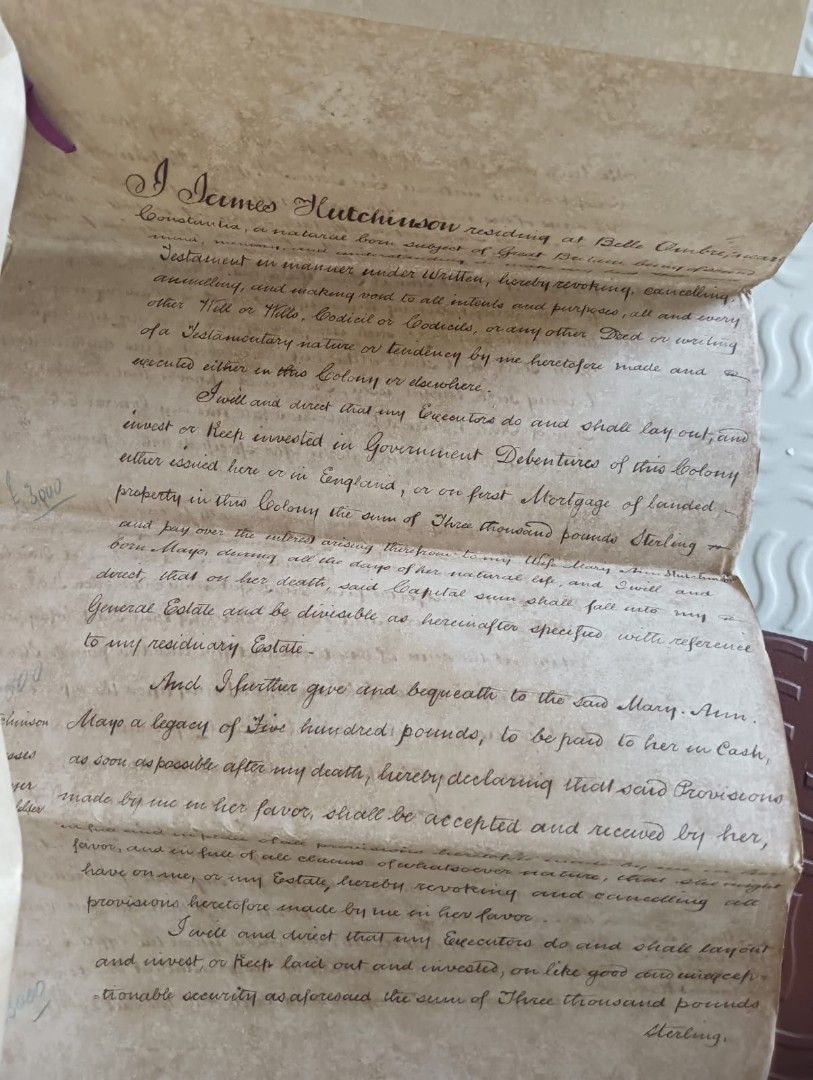 I James Hutchinson residing at Belle Ombre, near
Constantia, a natural born subject of Great Britain being of sound
mind, memory, and understanding
Testament in manner under written, hereby revoking, cancelling,
annulling, and making void to all intents and purposes, all and every
other Will or Wills, Codicil or Codicils, or any other Deed or writing
of a Testamentary nature or tendency by me heretofore made and
executed either in this Colony or elsewhere.
I will and direct that my Executors do and shall lay out, and
invest or Keep invested in Government Debentures of this Colony
either issued here or in England, or on first Mortgage of landed
£3,000
property in this Colony the sum of Three thousand pounds Sterling
and pay over the interest arising therefrom to my Wife Mary Ann Hutchinson
born Mayo, during all the days of her natural life, and I will and
direct, that on her death, said Capital sum shall fall into my
General Estate and be divisible as hereinafter specified with reference
to my residuary Estate.
And I further give and bequeath to the said Mary. Ann.
Mayo a legacy of Five hundred pounds, to be paid to her in Cash,
as soon as possible after my death, hereby declaring that said Provisions
made by me in her favor, shall be accepted and received by her,
provisions heretofore made by me in
favor, and in full of all claims of whatsoever nature, that she might
have on me, or my Estate, hereby revoking and cancelling all
provisions heretofore made by me in her favor.
I will and direct that my Executors do and shall lay out
and invest, or Keep laid out and invested, on like good and unexcep-
-tionable security as aforesaid the sum of Three thousand pounds
Sterling.